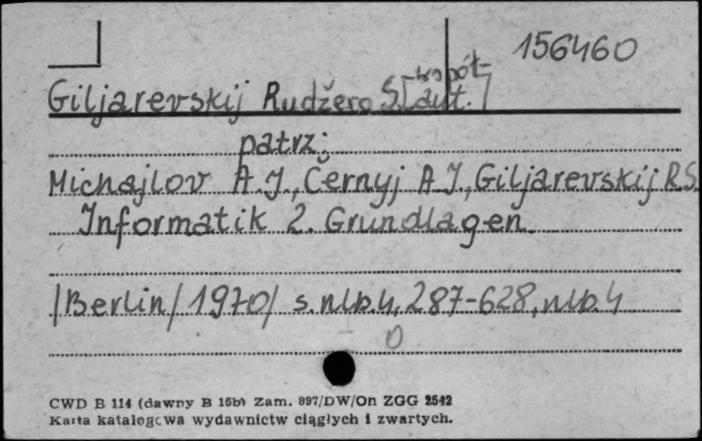 156460
Giljarevskij Rudžero S. [współ-
aut.]
patrz:
Michajlov A.J., Černyj A.J., Giljarevskij R.S.
Informatik 2. Grundlagen.
/Berlin/ 1970/ s. nlb. 4, 287-628, nlb. 4
0
CWD B 114 (dawny B 15b) Zam. 897/DW/On ZGG 2542
Karta katalogowa wydawnictw ciągłych i zwartych.